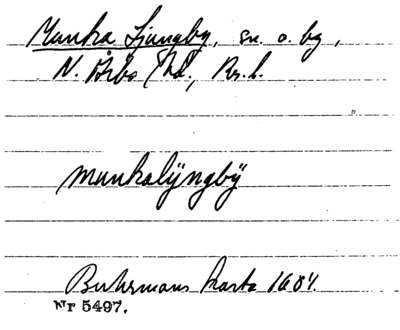 Munka Ljungby, sn. o. by,
N. Åsbo hd., Kr. l.
munkalÿngbÿ
Buhrmans karta 1684.
Nr 5497.